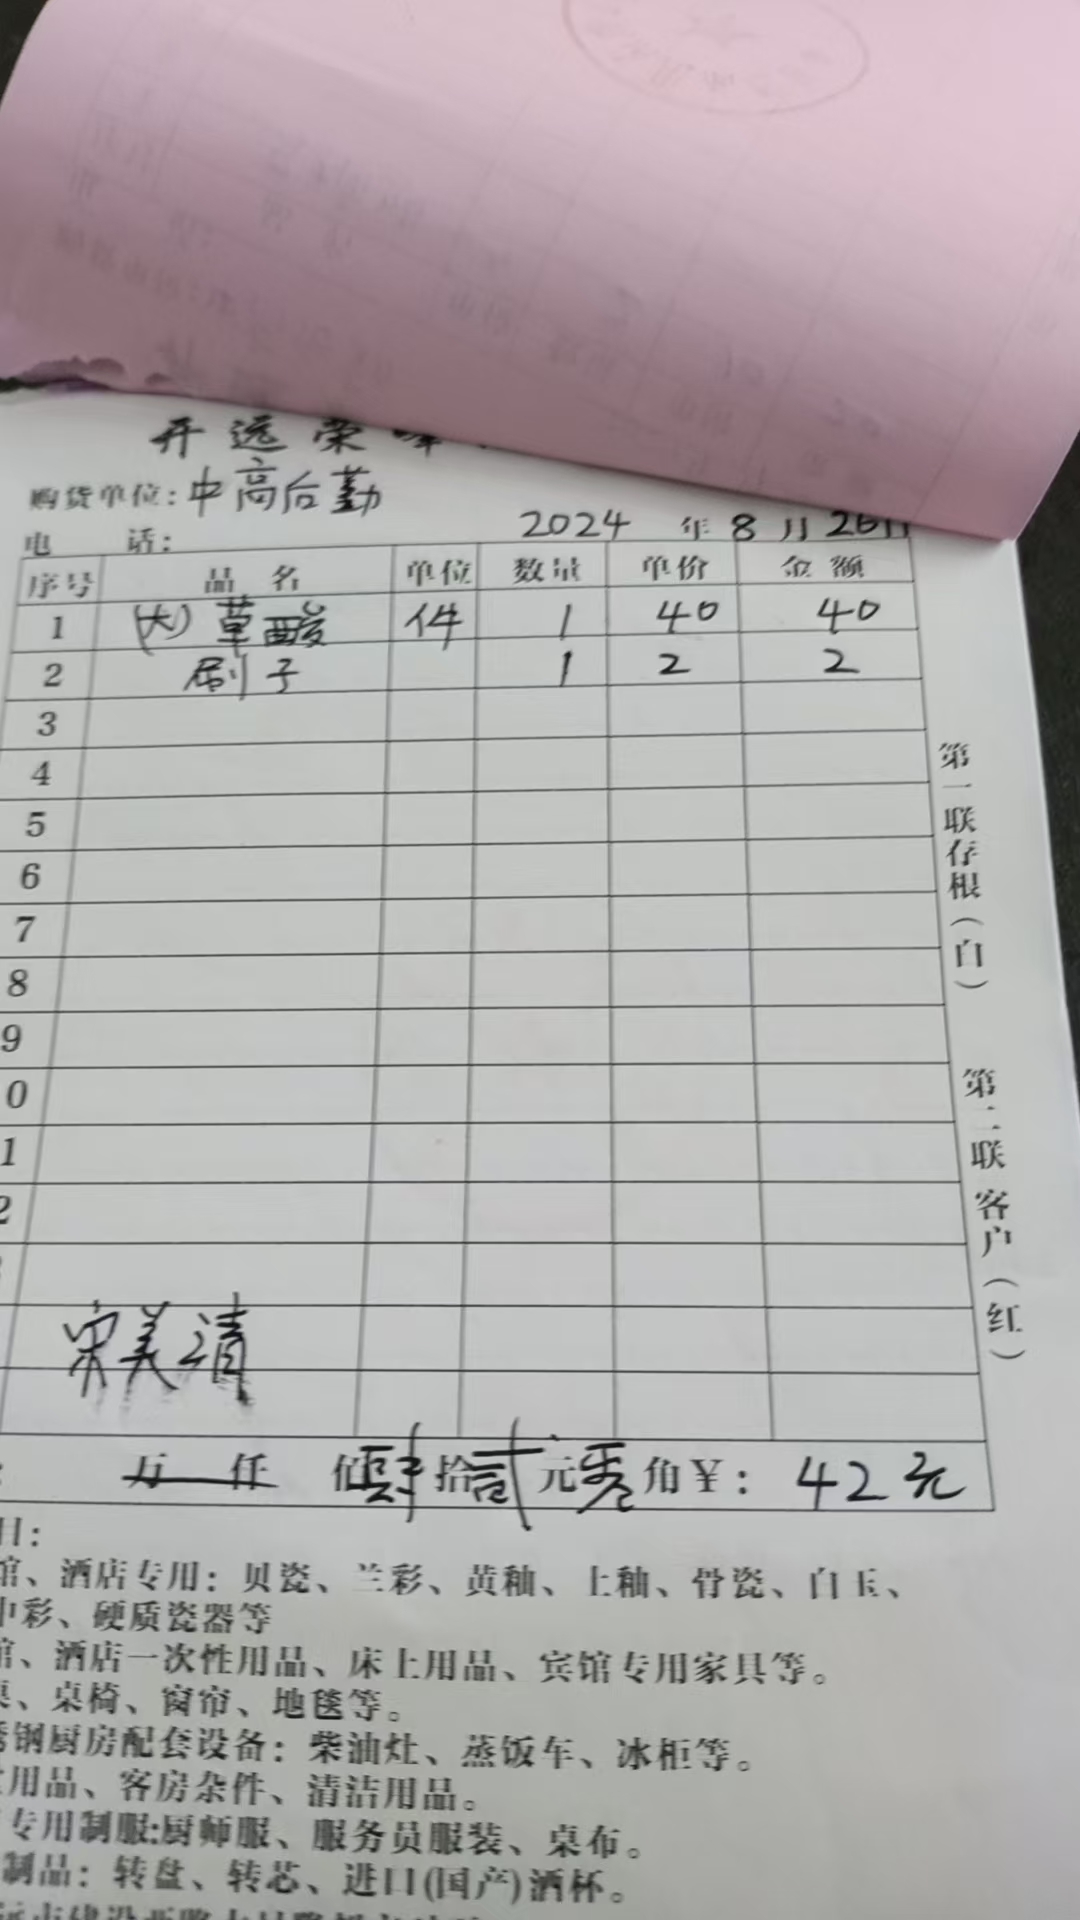 开远荣峰
购货单位：中高后勤
电 话： 2024 年 8 月 26日
序号 品名 单位 数量 单价 金额
1 (大)草酸 件 1 40 40
2 刷子 1 2 2
3
4
5
6
7
8
9
0
1
2
第一联存根（白） 第二联客户（红）
宋美清
万 仟 佰 肆 拾 贰 元 零 角 ￥： 42元
目：
馆、酒店专用：贝瓷、兰彩、黄釉、上釉、骨瓷、白玉、
中彩、硬质瓷器等
馆、酒店一次性用品、床上用品、宾馆专用家具等。
桌、桌椅、窗帘、地毯等。
锈钢厨房配套设备：柴油灶、蒸饭车、冰柜等。
用品、客房杂件、清洁用品。
专用制服:厨师服、服务员服装、桌布。
制品：转盘、转芯、进口(国产)酒杯。